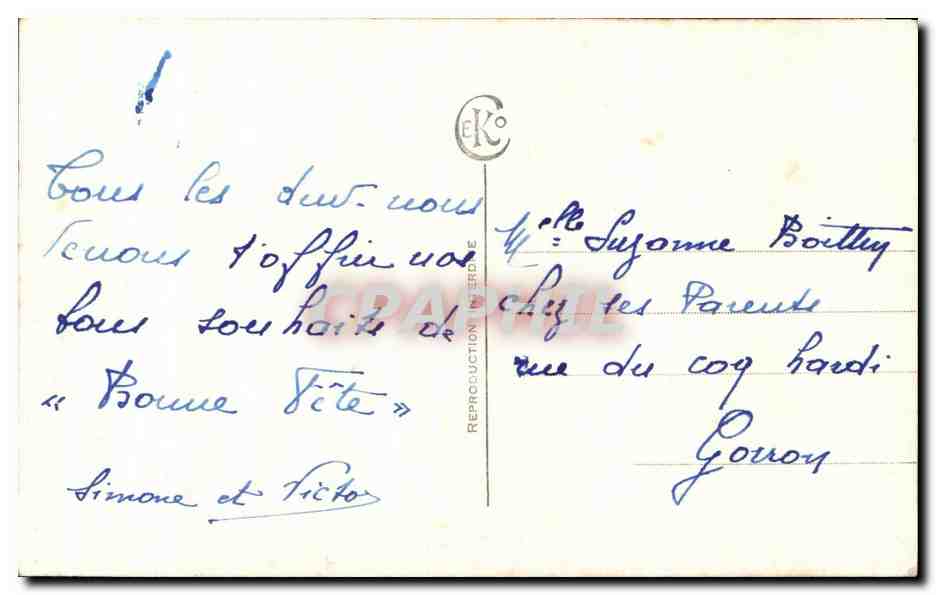 Tous les deux nous
venons t'offrir nos
bons souhaits de
« Bonne Fête »
Simone et Victor
EKO
REPRODUCTION INTERDITE
CPAPHIL
Melle Suzanne
chez ses Parents
rue du coq hardi
Gorron